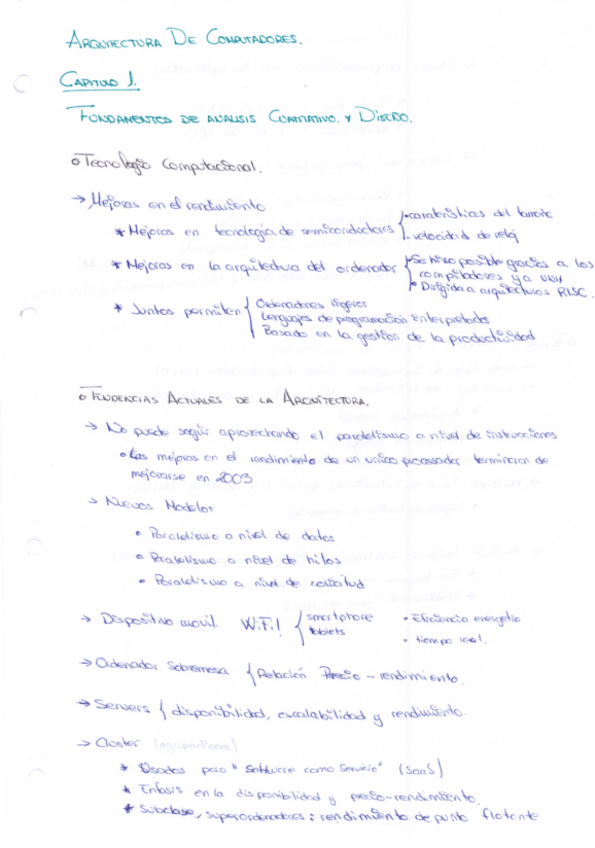 ARQUITECTURA DE COMPUTADORES.
CAPITULO 1.
FUNDAMENTOS DE ANALISIS CUANTITATIVO. Y DISEÑO.
o Tecnología Computacional.
→ Mejoras en el rendimiento
* Mejoras en tecnología de semiconductores { - caraterísticas del tamaño
- velocidad de reloj
* Mejoras en la arquitectura del ordenador { • Se hizo posible gracias a los
compiladores y a UNIX
• Dirigida a arquitecturas RISC.
* Juntos permiten { Ordenadores ligeros
Lenguajes de programación interpretados
Basado en la gestión de la productividad
o TENDENCIAS ACTUALES DE LA ARQUITECTURA.
→ No puede seguir aprovechando el paralelismo a nivel de instrucciones
• Las mejoras en el rendimiento de un unico procesador terminaron de
mejorarse en 2003
→ Nuevos Modelos
• Paralelismo a nivel de datos
• Paralelismo a nivel de hilos
• Paralelismo a nivel de
→ Dispositivo movil WiFi! { smartphone • Eficiencia energetica
tablets • tiempo real.
→ Ordenador Sobremesa { Relación Precio - rendimiento.
→ Servers { disponibilidad, escalabilidad y rendimiento.
→ Cluster (agrupaciones)
* Usados para "Software como Servicio" (SaaS)
* Enfasis en la disponibilidad y precio-rendimiento.
* Subclase, superordenadores: rendimiento de punto flotante